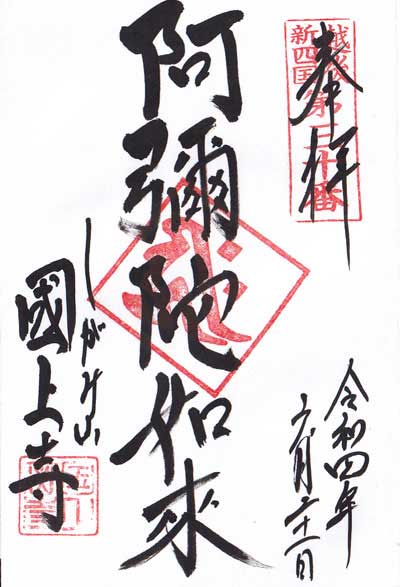 奉拝
越後
新四国
第二十番
令和四年
六月二十一日
阿彌陀如来
くがみ山
國上寺